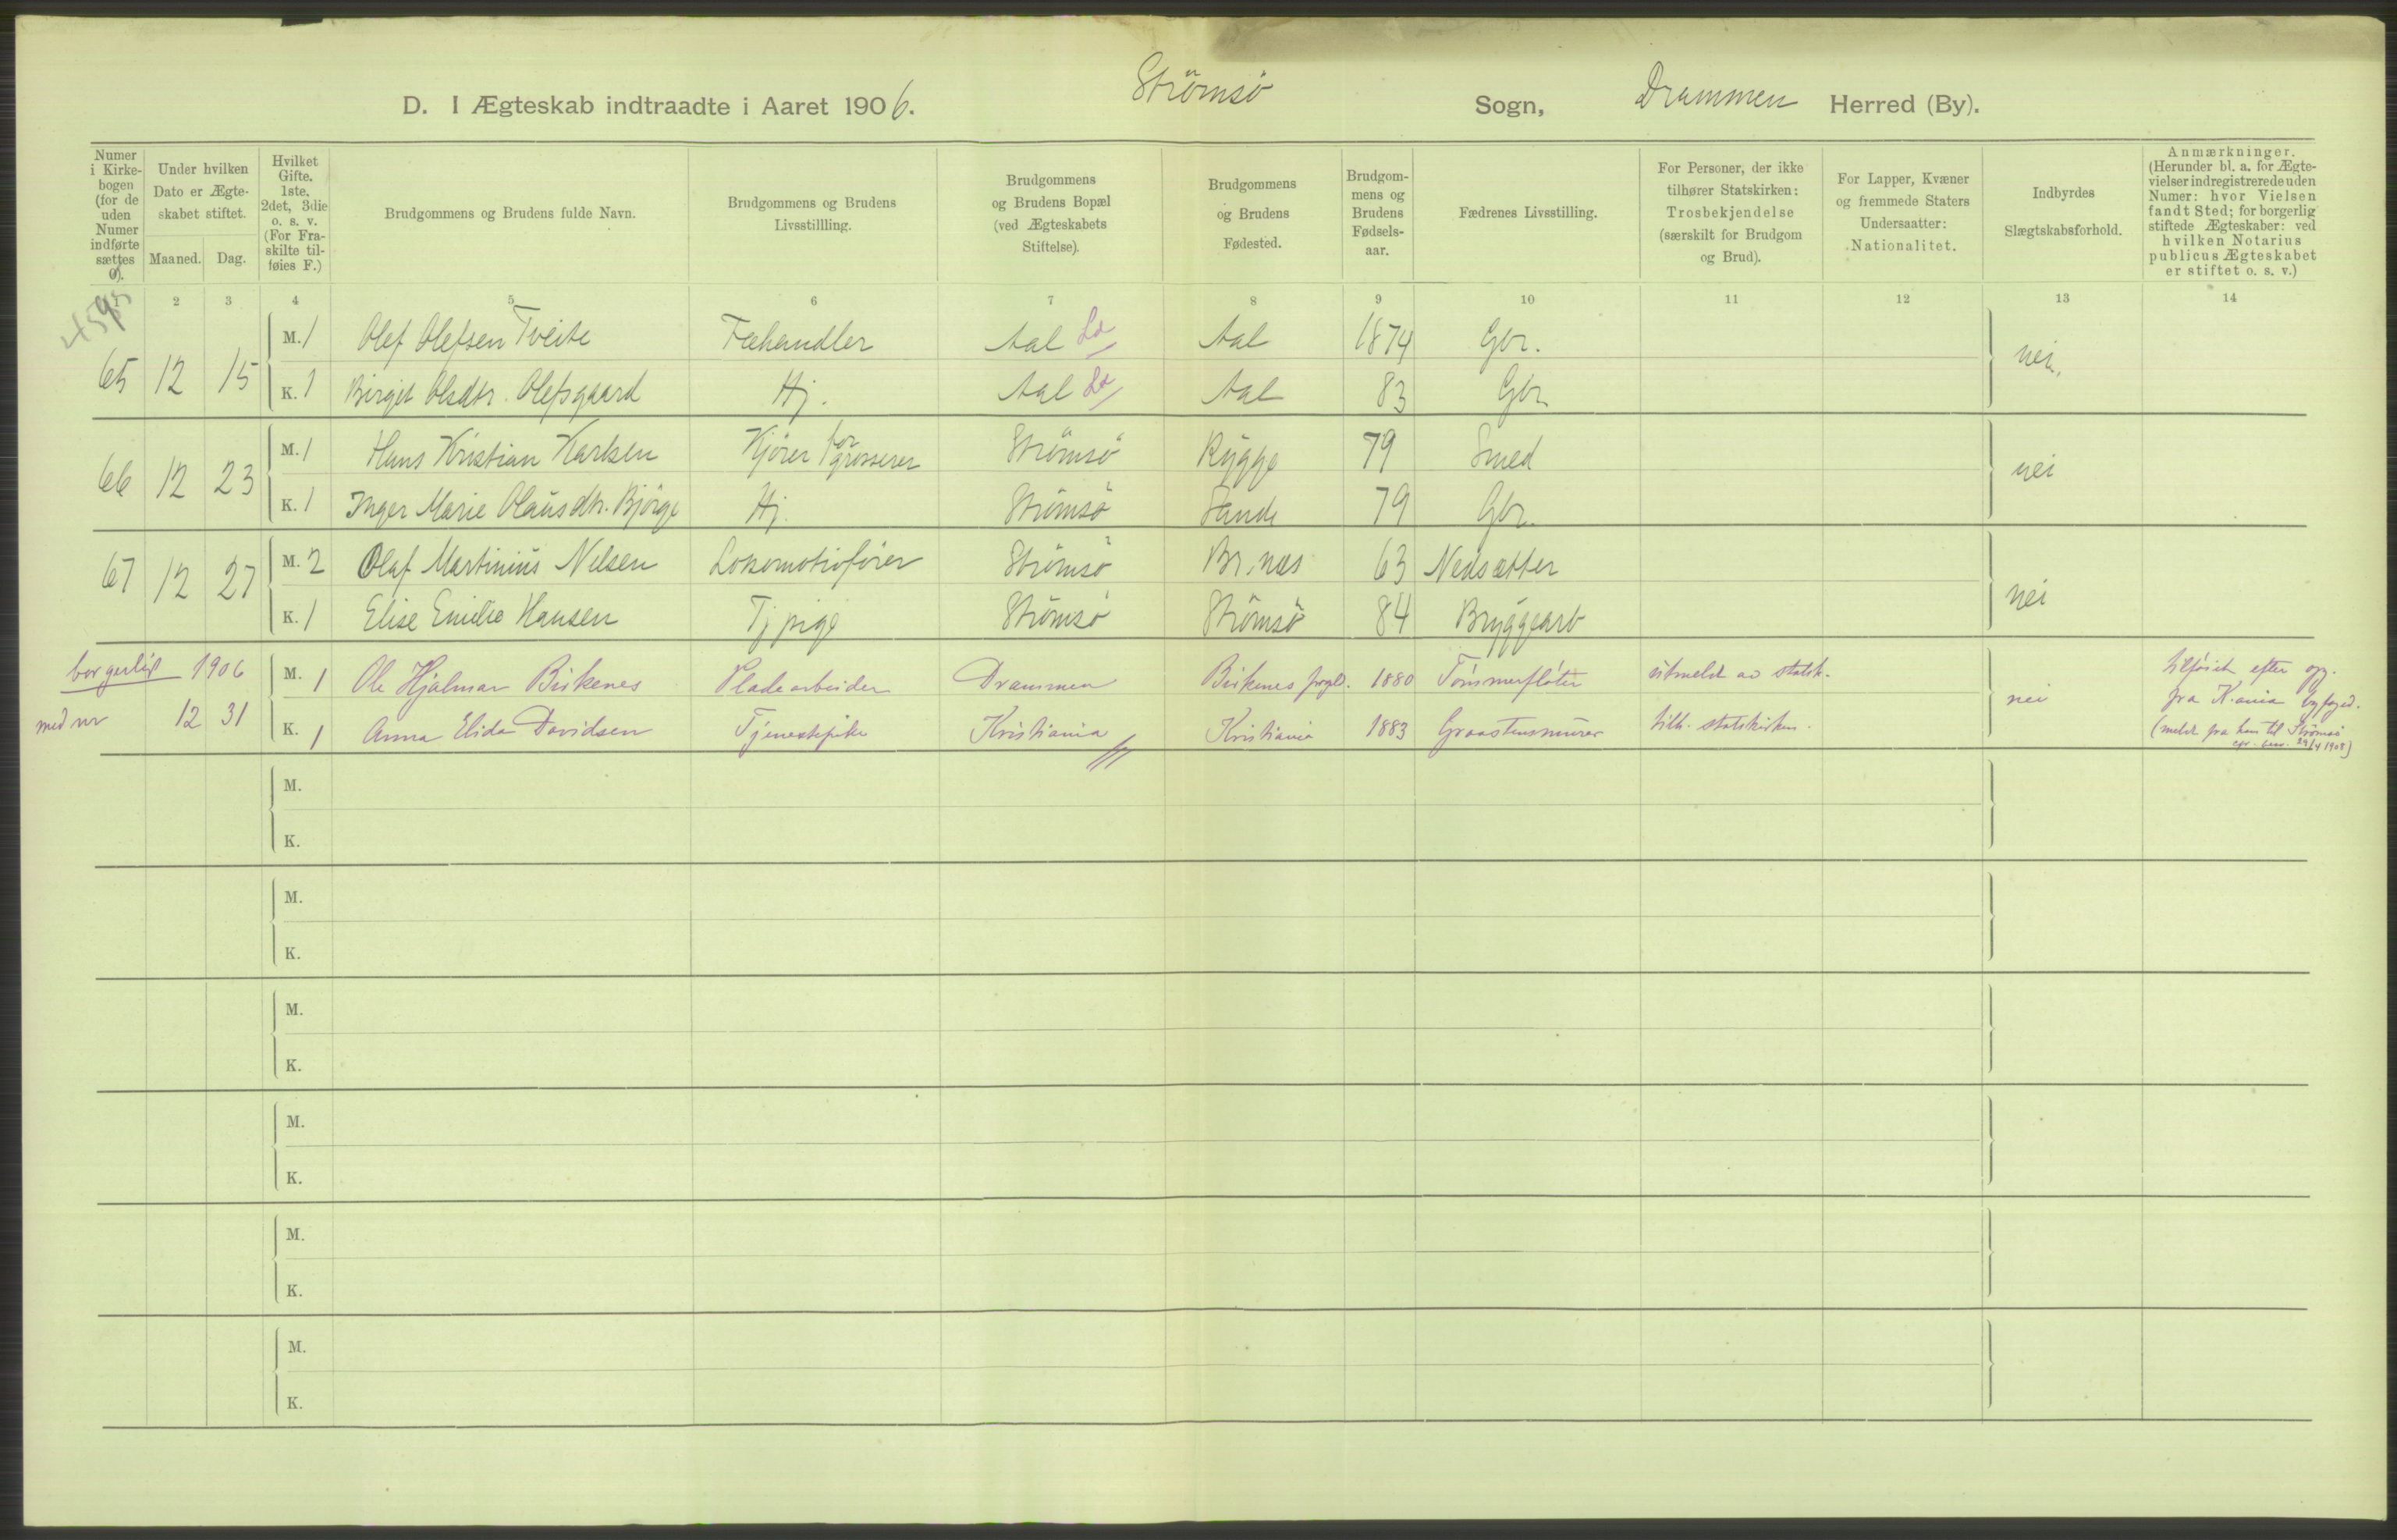 D. I Ægteskab indtraadte i Aaret 1906. Strömsö Sogn, Drammen Herred (By).
Numer i Kirkebogen (for de uden Numer indførte sættes 0).
Under hvilken Dato er Ægteskabet stiftet.
Maaned. Dag.
Hvilket Gifte. 1ste, 2det, 3die o. s. v. (For Fraskilte tilføies F.)
Brudgommens og Brudens fulde Navn.
Brudgommens og Brudens Livsstillling.
Brudgommens og Brudens Bopæl (ved Ægteskabets Stiftelse).
Brudgommens og Brudens Fødested.
Brudgommens og Brudens Fødselsaar.
Fædrenes Livsstilling.
For Personer, der ikke tilhører Statskirken: Trosbekjendelse (særskilt for Brudgom og Brud).
For Lapper, Kvæner og fremmede Staters Undersaatter: Nationalitet.
Indbyrdes Slægtskabsforhold.
Anmærkninger. (Herunder bl. a. for Ægtevielser indregistrerede uden Numer: hvor Vielsen fandt Sted; for borgerlig stiftede Ægteskaber: ved hvilken Notarius publicus Ægteskabet er stiftet o. s. v.)
1 2 3 4 5 6 7 8 9 10 11 12 13 14
4595
M. 1 Olef Olefsen Tveite Fæhandler Aal Ld Aal 1874 Gbr.
65 12 15 nei,
K. 1 Birgit Olsdtr. Olefsgaard Hj. Aal Ld Aal 83 Gbr
M. 1 Hans Kristian Karlsen Kjører for grosserer Strömsö Rygge 79 Smed
66 12 23 nei
K. 1 Inger Marie Olausdtr. Bjørge Hj. Strömsö Sande 79 Gbr.
M. 2 Olaf Martinius Nilsen Lokomotivfører Strömsö Br.næs 63 Nedsætter
67 12 27 nei
K. 1 Elise Emilie Hansen Tj pige Strömsö Strömsö 84 Bryggearb
borgerlig 1906 M. 1 Ole Hjalmar Birkenes Pladearbeider Drammen Birkenes prgld. 1880 Tømmerfløter utmeldt av statsk. nei tilføiet efter opg.
med nr 12 31 K. 1 Anna Elida Davidsen Tjenestepike Kristiania Kristiania 1883 Graastensmurer tilh. statskirken. fra K.ania byfoged.
(meldt fra ham til Strømsö
29/4 1908)
M.
K.
M.
K.
M.
K.
M.
K.
M.
K.
M.
K.